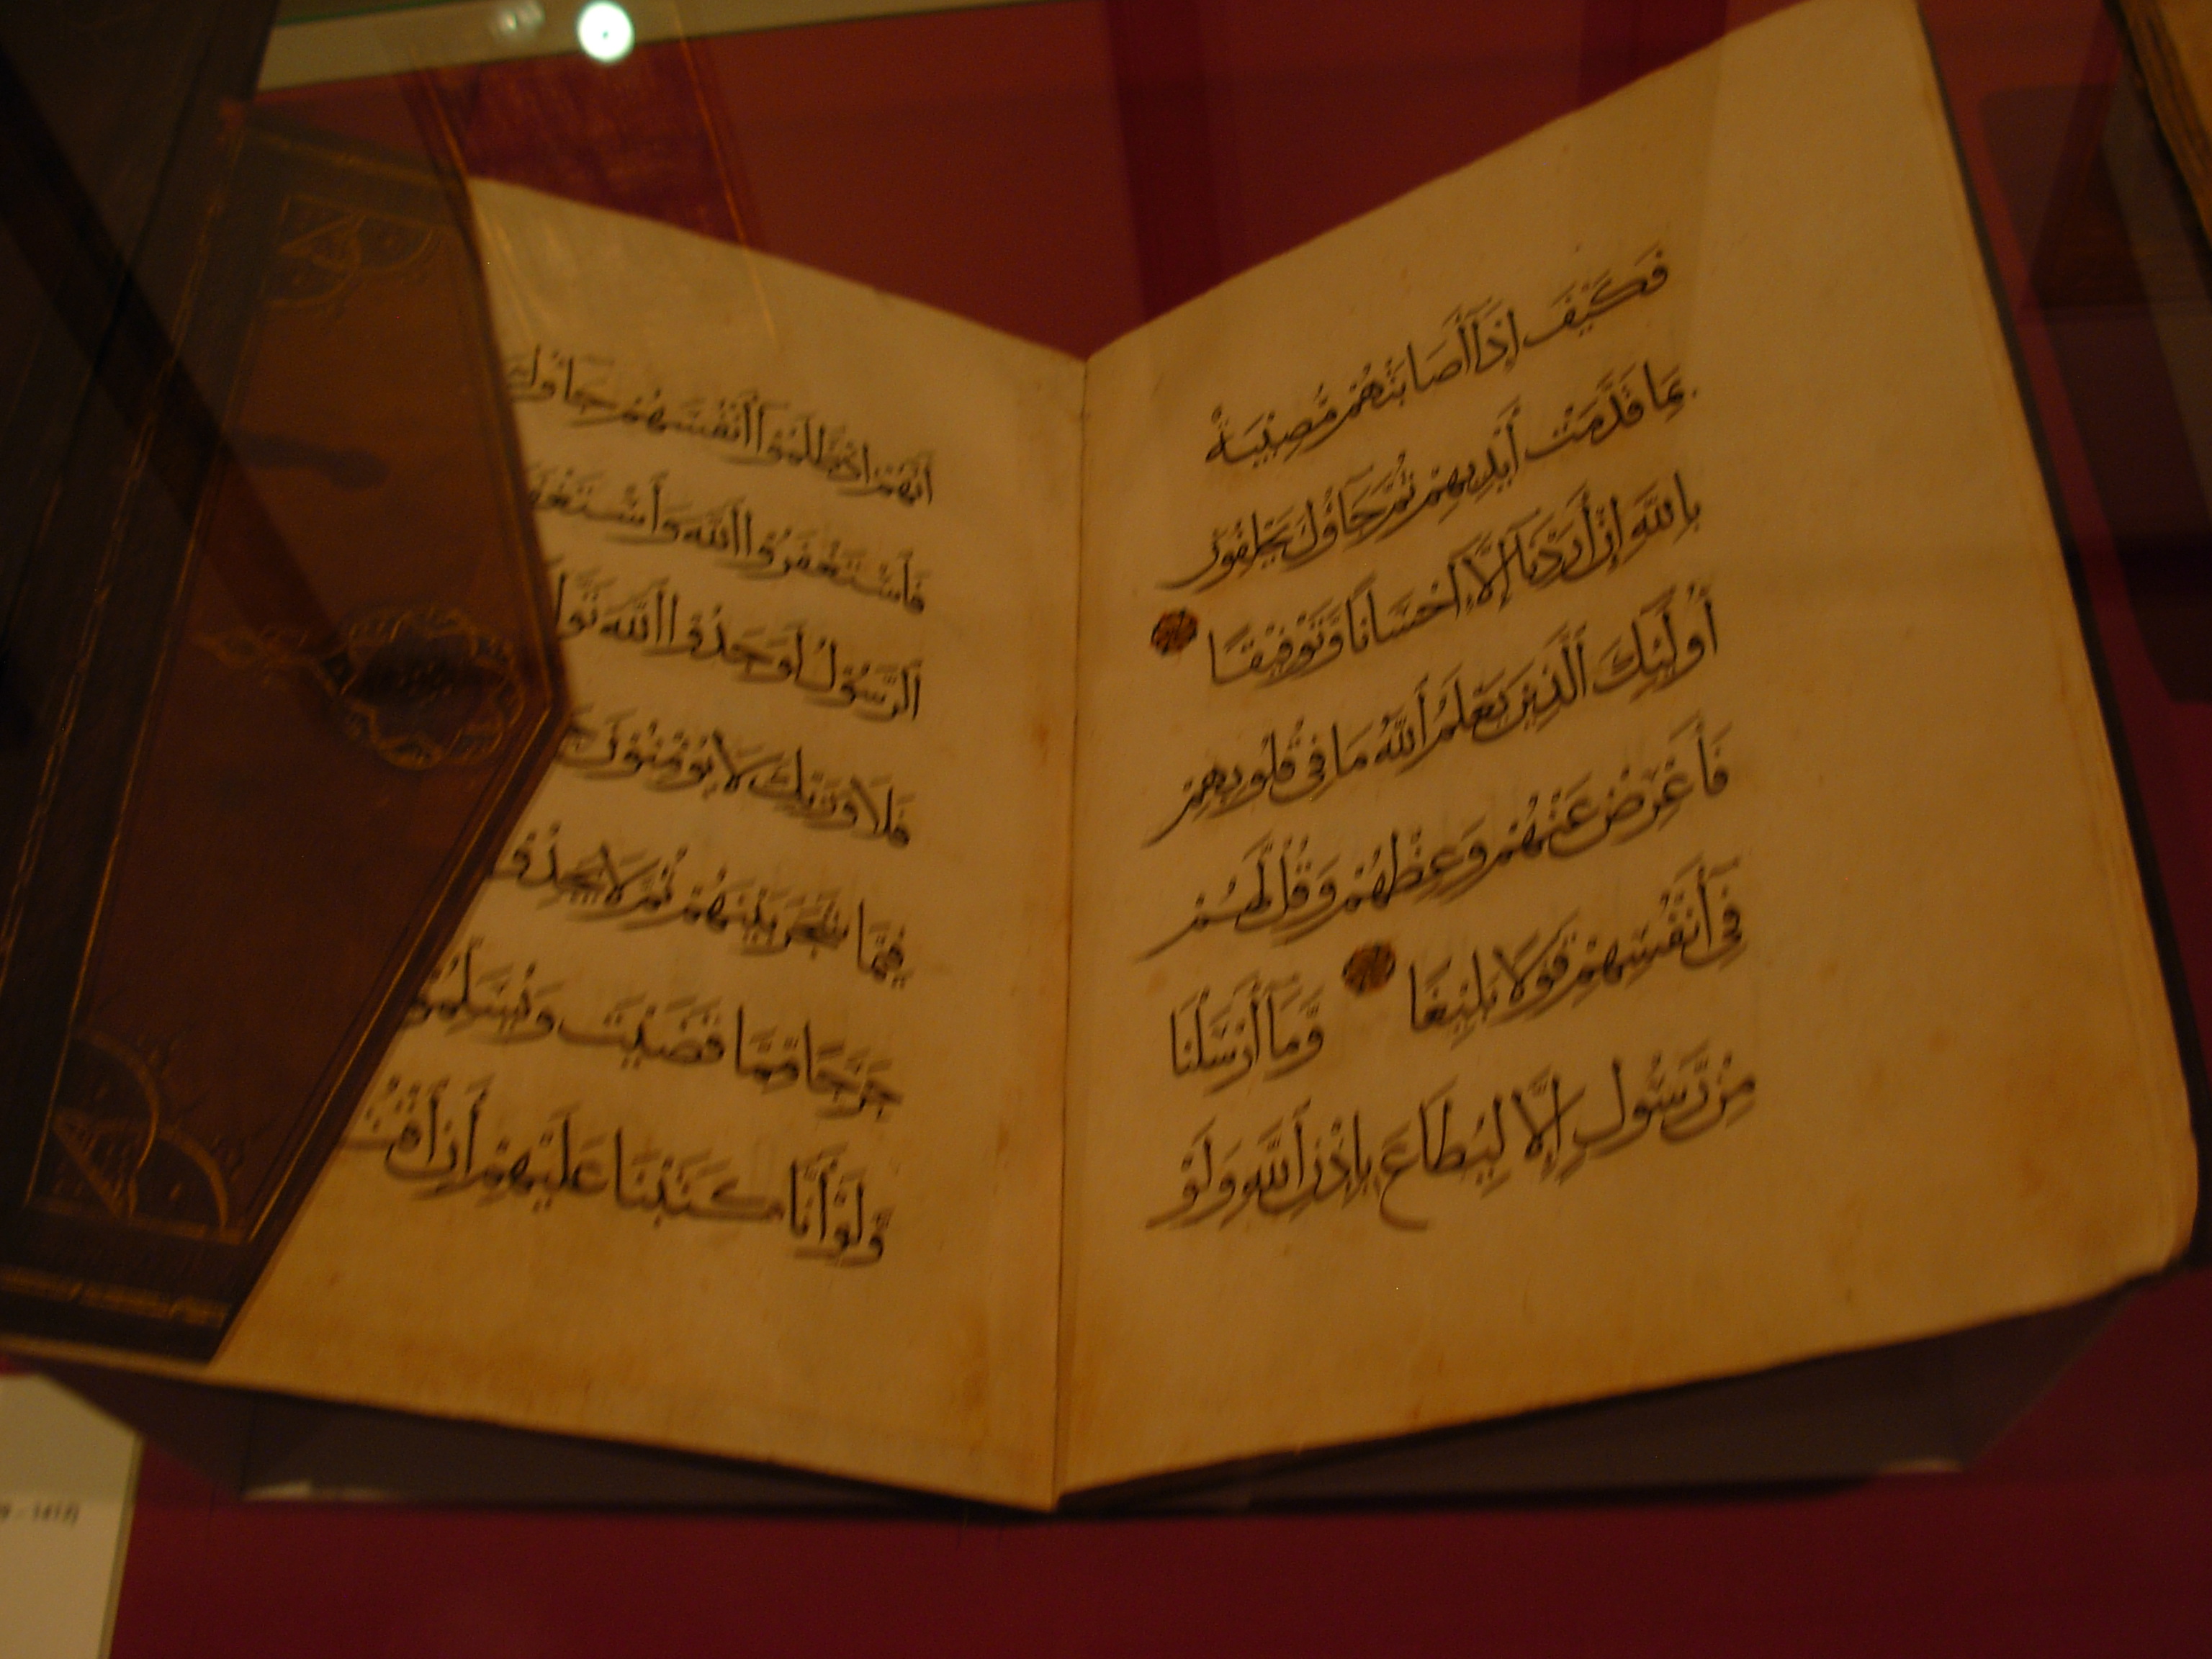 فَكَيْفَ إِذَا أَصَابَتْهُمْ مُصِيبَةٌ
بِمَا قَدَّمَتْ أَيْدِيهِمْ ثُمَّ جَاؤُكَ يَحْلِفُونَ
بِاللَّهِ إِنْ أَرَدْنَا إِلَّا إِحْسَانًا وَتَوْفِيقًا
أُولَئِكَ الَّذِينَ يَعْلَمُ اللَّهُ مَا فِي قُلُوبِهِمْ
فَأَعْرِضْ عَنْهُمْ وَعِظْهُمْ وَقُلْ لَهُمْ
فِي أَنْفُسِهِمْ قَوْلًا بَلِيغًا وَمَا أَرْسَلْنَا
مِنْ رَسُولٍ إِلَّا لِيُطَاعَ بِإِذْنِ اللَّهِ وَلَوْ
أَنَّهُمْ إِذْ ظَلَمُوا أَنْفُسَهُمْ جَاؤُكَ
فَاسْتَغْفَرُوا اللَّهَ وَاسْتَغْفَرَ
الرَّسُولُ لَوَجَدُوا اللَّهَ تَوَّا
فَلَا وَرَبِّكَ لَا يُؤْمِنُونَ
فِيمَا شَجَرَ بَيْنَهُمْ ثُمَّ لَا يَجِدُوا
حَرَجًا مِمَّا قَضَيْتَ وَيُسَلِّمُوا
وَلَوْ أَنَّا كَتَبْنَا عَلَيْهِمْ أَنِ اقْتُ
- 1412)